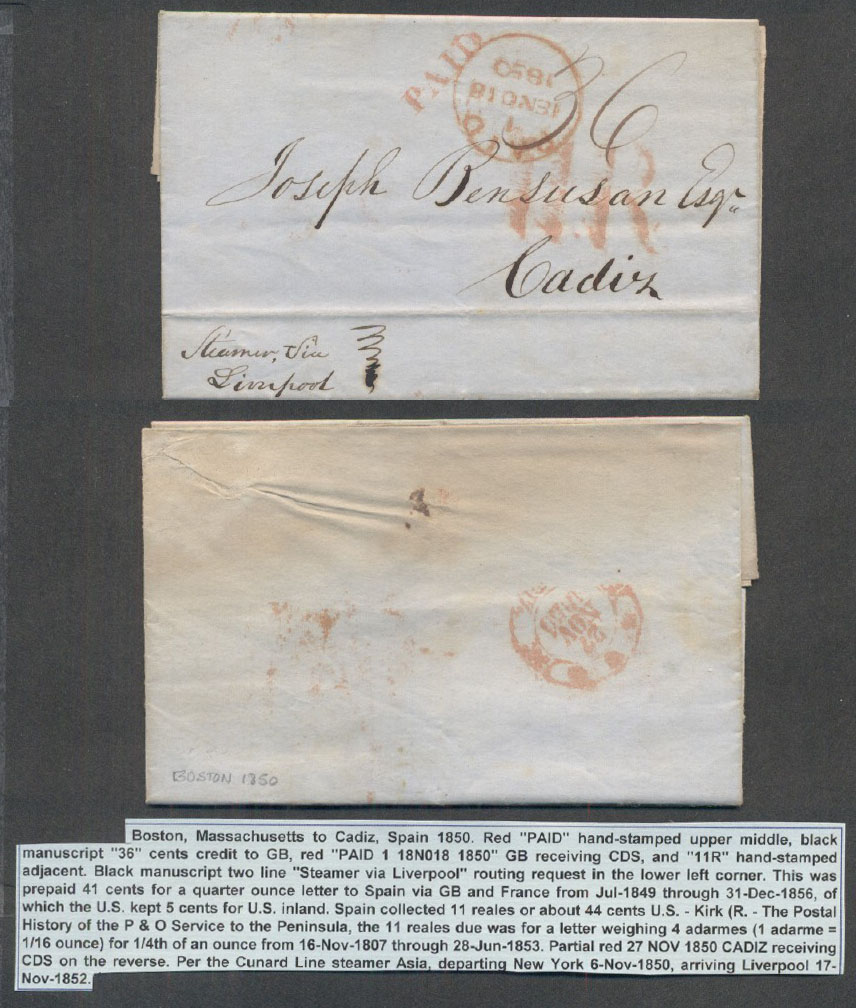 PAID
36
1850
18NO18
PAID
11.R
Joseph Bensusan Esqr
Cadiz
Steamer, Via
Liverpool
NOV
BOSTON 1850
Boston, Massachusetts to Cadiz, Spain 1850. Red "PAID" hand-stamped upper middle, black
manuscript "36" cents credit to GB, red "PAID 1 18N018 1850" GB receiving CDS, and "11R" hand-stamped
adjacent. Black manuscript two line "Steamer via Liverpool" routing request in the lower left corner. This was
prepaid 41 cents for a quarter ounce letter to Spain via GB and France from Jul-1849 through 31-Dec-1856, of
which the U.S. kept 5 cents for U.S. inland. Spain collected 11 reales or about 44 cents U.S. - Kirk (R. - The Postal
History of the P & O Service to the Peninsula, the 11 reales due was for a letter weighing 4 adarmes (1 adarme =
1/16 ounce) for 1/4th of an ounce from 16-Nov-1807 through 28-Jun-1853. Partial red 27 NOV 1850 CADIZ receiving
CDS on the reverse. Per the Cunard Line steamer Asia, departing New York 6-Nov-1850, arriving Liverpool 17-
Nov-1852.